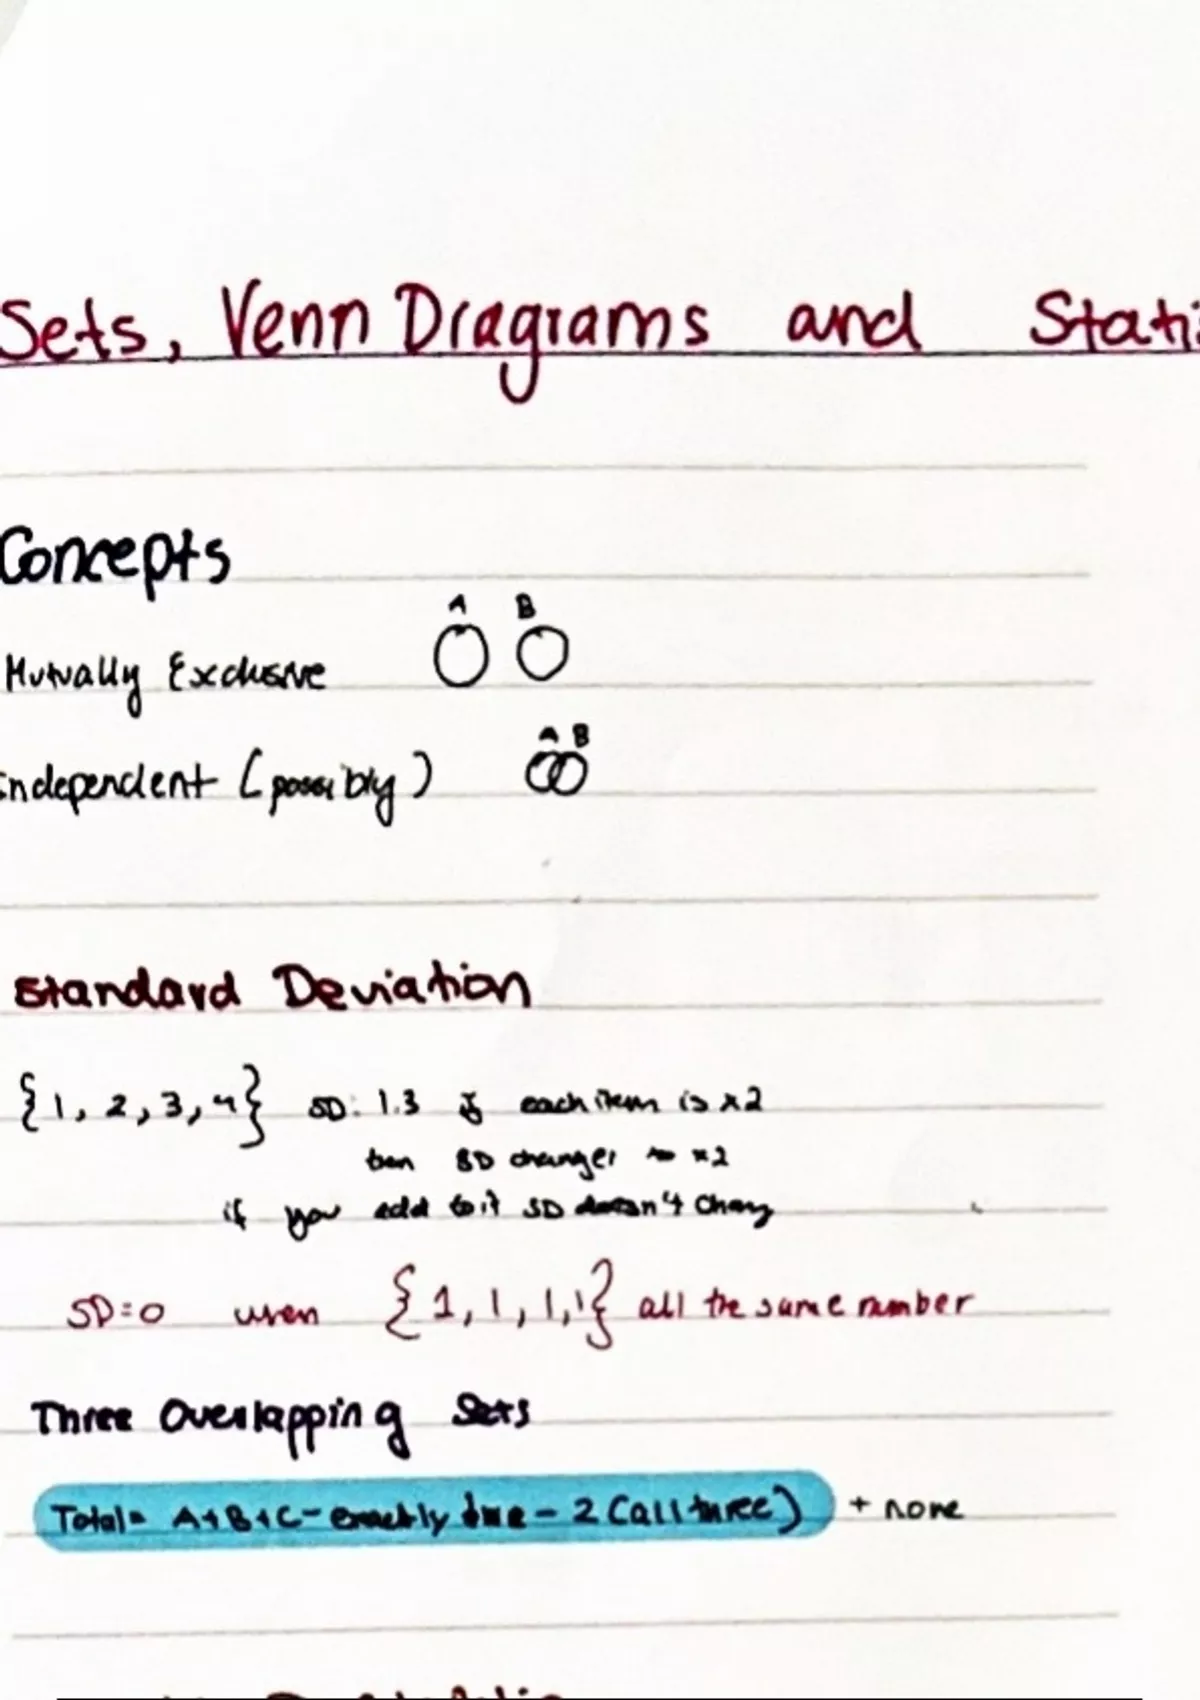 Sets, Venn Diagrams and Stati
Concepts
A B
Mutually Exclusive
A B
independent (possibly)
Standard Deviation
{1, 2, 3, 4} SD: 1.3 if each item is x2
then SD changes to x2
if you add to it SD doesn't chang
SD=0 when {1, 1, 1, 1} all the same number
Three Overlapping Sets
Total= A+B+C- exactly two - 2 (all three) + none